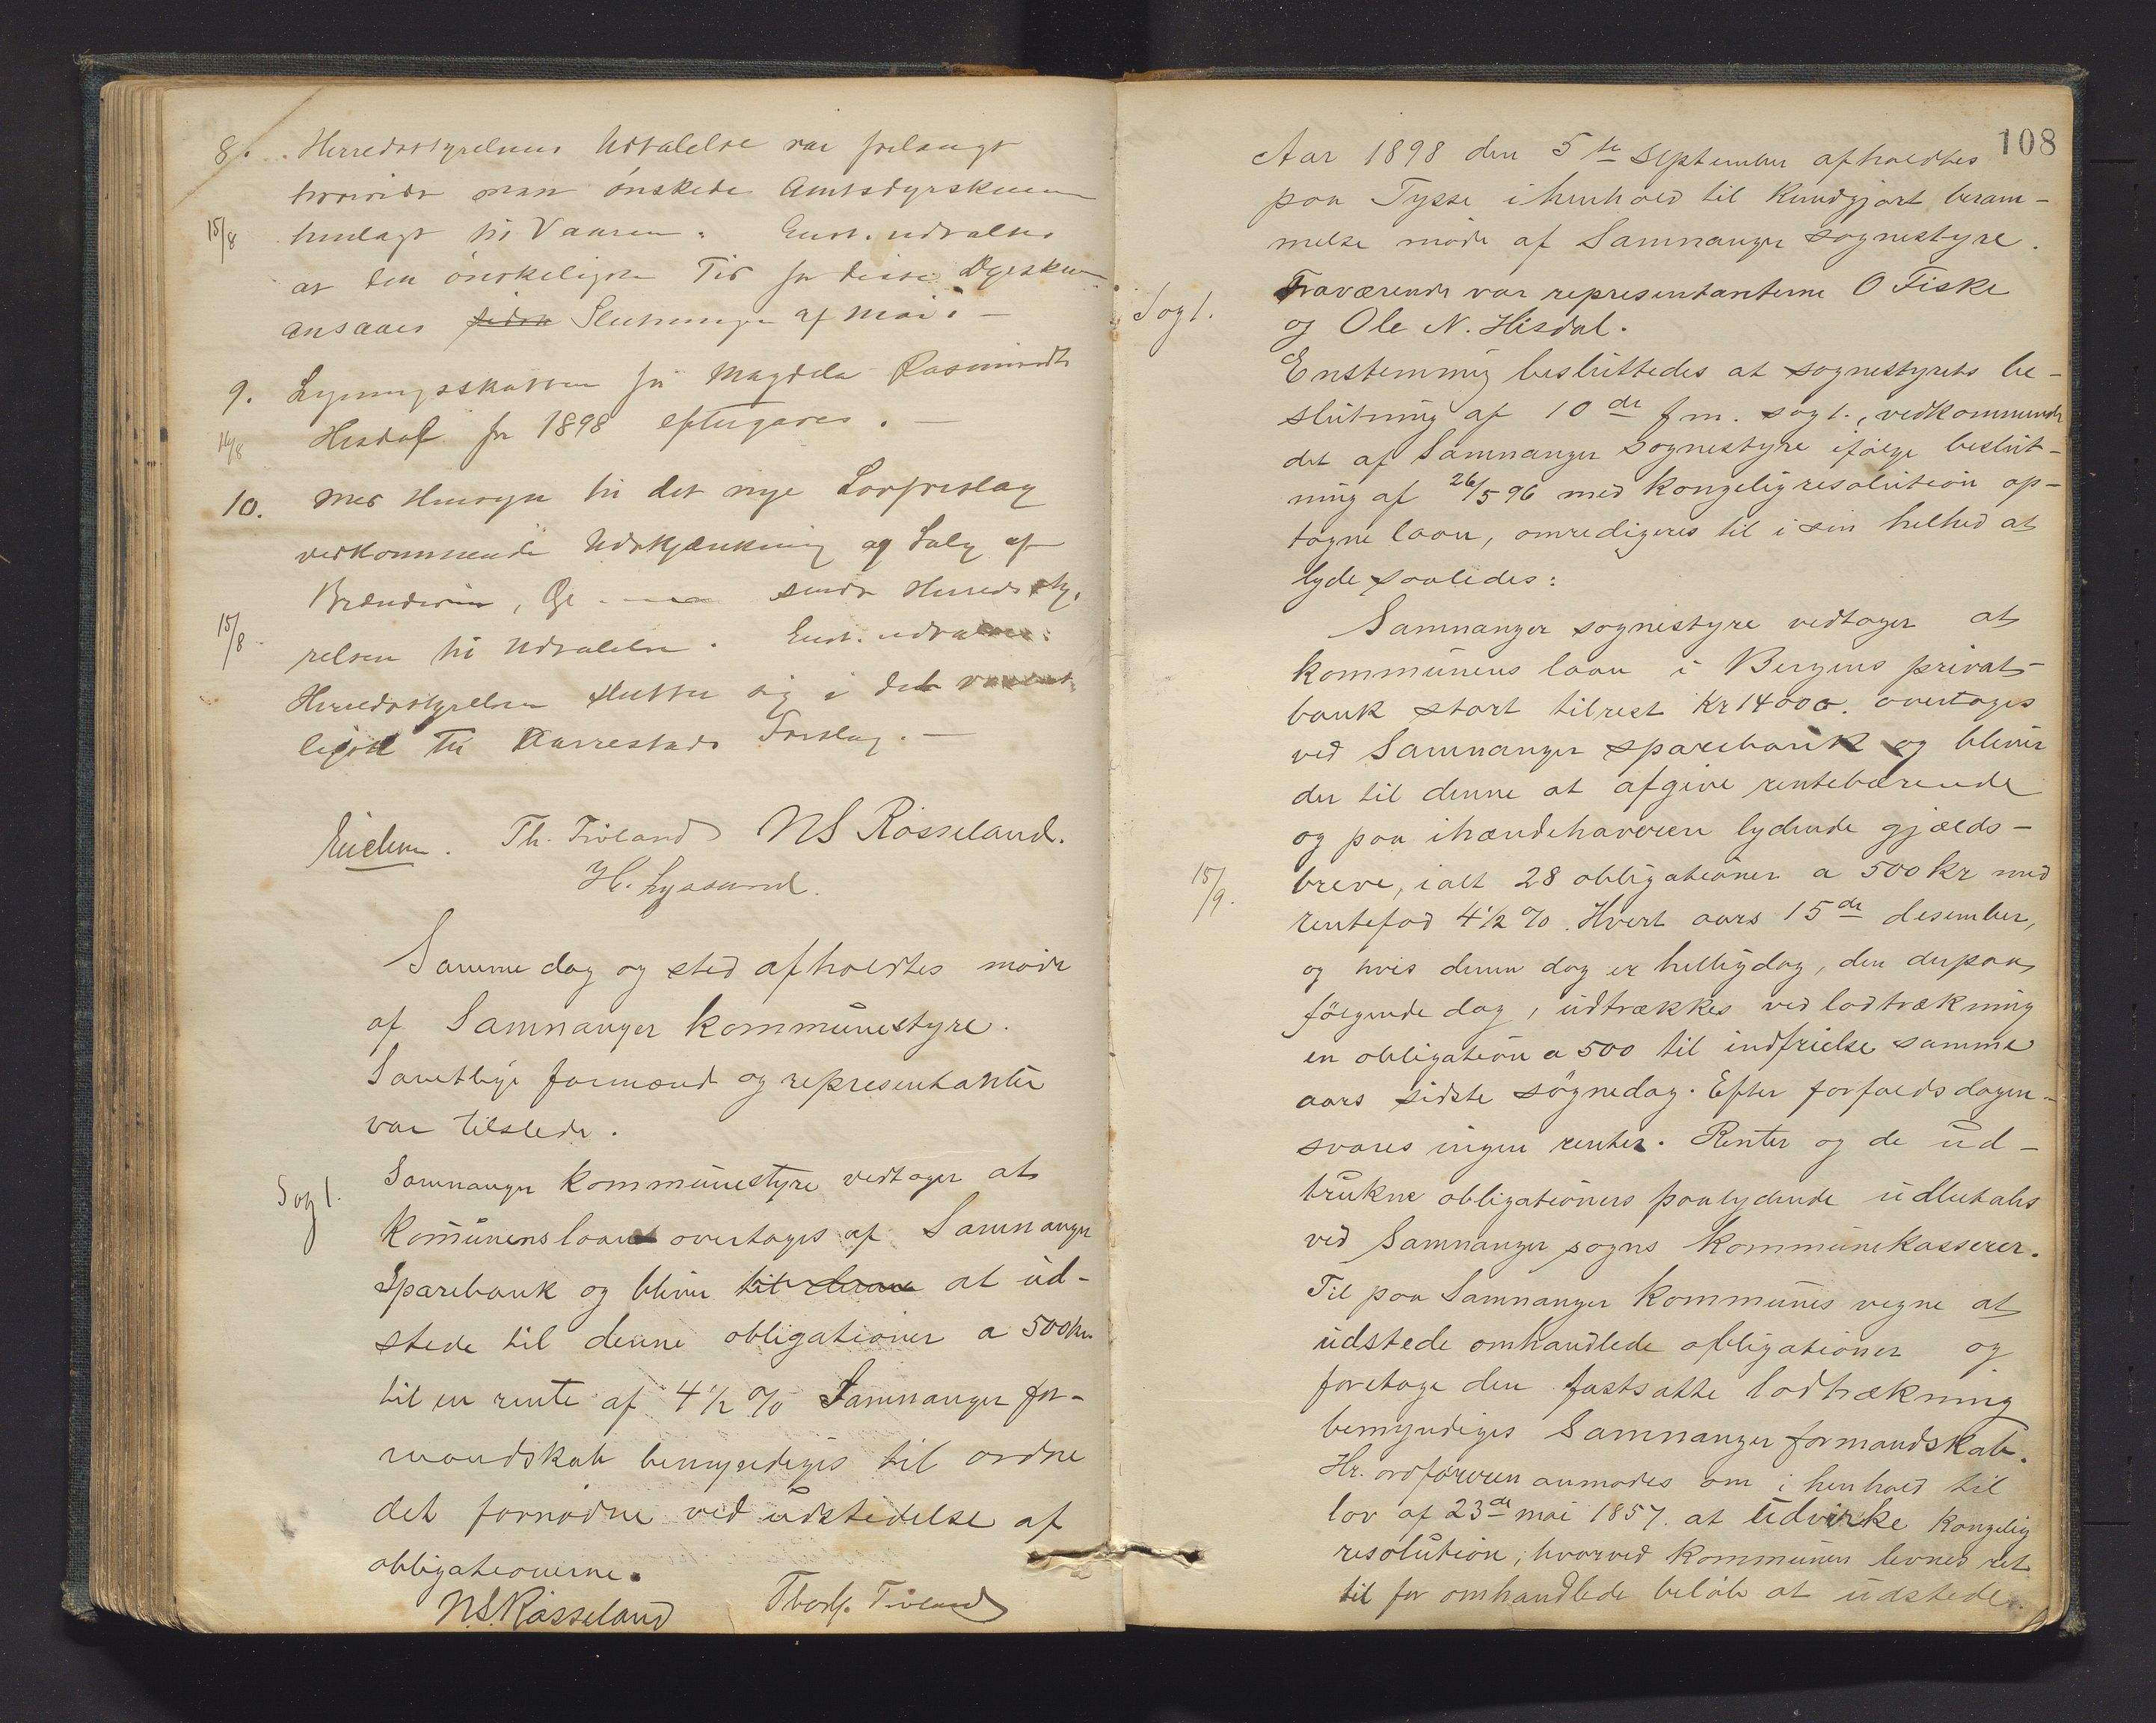 8. Herredsstyrelsens Udtalelse var forlangt
hvorvidt man ønskede Amtsdyrskuerne
15/8 henlagt til Vaaren. Enst. udtaltes
at den ønskeligste Tid for disse Dyrskuer
ansaaes siden Slutningen af Mai. —
9. Ligningsskatten for Magdela Rasmusdtr
16/8 Hisdal for 1898 eftergaves. —
10. Med Hensyn til det nye Lovforslag
vedkommende Udskjænkning og Salg af
Brændevin, Øl sendt Herredssty-
15/8 relsen til Udtalelse. Enst. udtaltes:
Herredsstyrelsen slutter sig i det væsent
lige til Aarrestads Forslag. —
Eichen. Th. Tveland NS Røsseland.
H. Lyssand.
Samme dag og sted afholdtes møde
af Samnanger kommunestyre.
Samtlige formænd og representanter
var tilstede.
Sag 1. Samnanger kommunestyre vedtager at
komunens laan overtages af Samnanger
Sparebank og bliver til denne at ud-
stede til denne obligationer a 500 kr.
til en rente af 4 1/2 % Samnanger for-
mandskab bemyndiges til ordne
det fornødne ved udstedelse af
obligationerne.
N.S. Røsseland Thorb. Tveland
108
Aar 1898 den 5te september afholdtes
paa Tysse i henhold til kundgjort beram-
melse møde af Samnanger sognestyre.
Fraværende var representanterne O Fiske
og Ole N. Hisdal.
Sag 1.
Enstemmig besluttedes at sognestyrets be-
slutning af 10de f.m. sag 1., vedkommende
det af Samnanger sognestyre ifølge beslut-
ning af 26/5 96 med kongelig resolution op-
tagne laan, omredigeres til i sin helhed at
lyde saaledes:
Samnanger sognestyre vedtager at
kommunens laan i Bergens privat-
bank stort tilrest Kr 14000. overtages
ved Samnanger sparebank og bliver
der til denne at afgive rentebærende
og paa ihændehaveren lydende gjælds-
15/9. breve, ialt 28 obligationer a 500 kr med
rentefod 4 1/2 %. Hvert aars 15de desember,
og hvis denne dag er helligdag, den derpaa
følgende dag, udtrækkes ved lodtrækning
en obligation a 500 til indfrielse samme
aars sidste søgnedag. Efter forfaldsdagen
svares ingen renter. Renter og de ud-
trukne obligationers paalydende udbetales
ved Samnanger sogns kommunekasserer.
Til paa Samnanger kommunes vegne at
udstede omhandlede obligationer og
foretage den fastsatte lodtrækning
bemyndiges Samnanger formandskab.
Hr. ordføreren anmodes om i henhold til
lov af 23de mai 1857. at udvirke kongelig
resolution, hvorved kommunen levnes ret
til for omhandlede beløb at udstede